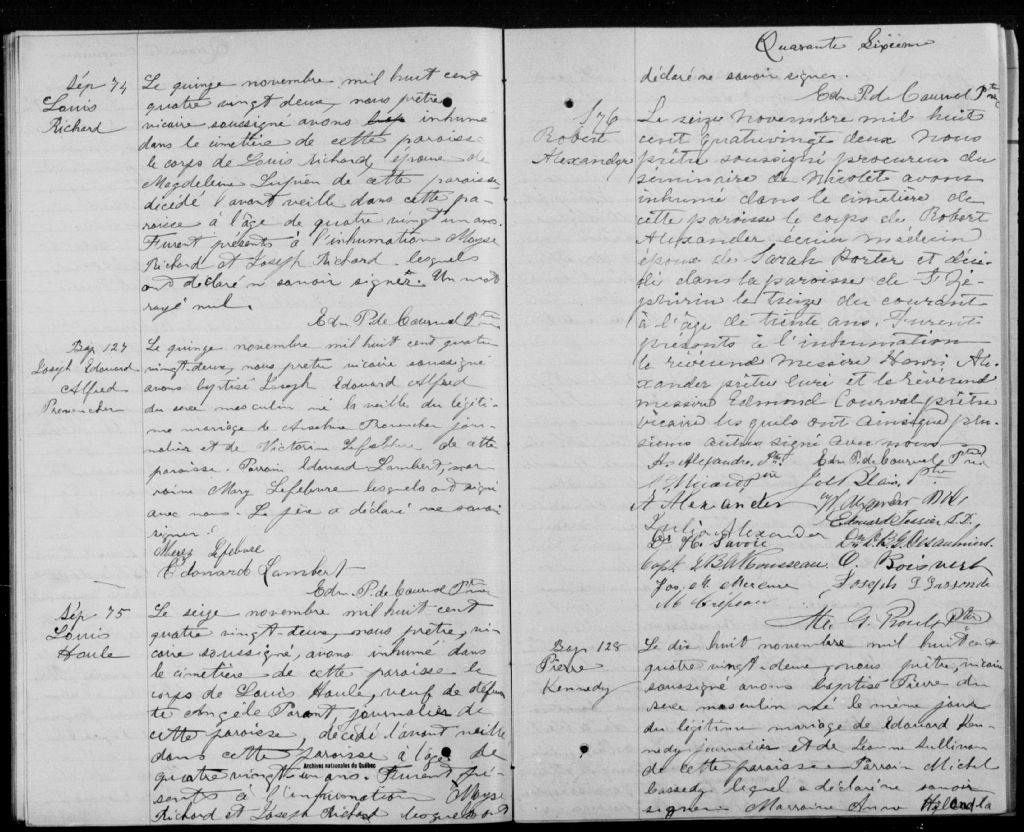 Sép 74
Louis
Richard
Le quinze novembre mil huit cent
quatre vingt deux, nous prêtre
vicaire soussigné avons inhumé
dans le cimetière de cette paroisse
le corps de Louis Richard, époux de
Magdeleine Lupien de cette paroisse,
décédé l'avant veille dans cette pa-
roisse à l'âge de quatre vingt un ans.
Furent présents à l'inhumation Moyse
Richard et Joseph Richard lesquels
ont déclaré n savoir signer. Un mot
rayé nul.
Edm P. de Courval Ptre
Bap 127
Joseph Edouard
Alfred
Provencher
Le quinze novembre mil huit cent quatre
vingt-deux, nous prêtre vicaire soussigné
avons baptisé Joseph Edouard Alfred
du sexe masculin né la veille du légiti-
me mariage de Provencher jour-
nalier et de Victorine Lefebvre de cette
paroisse. Parrain Edouard Lambert, mar-
raine Mary Lefebvre lesquels ont signé
avec nous. Le père a déclaré ne savoir
signer.
Lefebvre
Edouard Lambert
Edm. P. de Courval Ptre
Sép 75
Louis
Houle
Le seize novembre mil huit cent
quatre vingt-deux, nous prêtre, vi-
caire soussigné, avons inhumé dans
le cimetière de cette paroisse le
corps de Louis Houle, veuf de défun
te Angèle Parant, journalier de
cette paroisse, décédé l'avant veille
dans cette paroisse à l'âge de
quatre vingt un ans. Furent pré-
sents à l'inhumation Moyse
Richard et Joseph Richard lesquels ont
Archives nationales du Québec
Quarante Sixième
déclaré ne savoir signer.
Edm P. de Courval Ptre
S 76
Robert
Alexandre
Le seize Novembre mil huit
cent quatrevingt deux nous
prêtre soussigné procureur du
séminaire de Nicolet avons
inhumé dans le cimetière de
cette paroisse le corps de Robert
Alexander, écuier médecin
époux de Sarah Porter et décé-
dé dans la paroisse de St Zé-
phirin le treize du courant
à l'âge de trente ans. Furent
présents à l'inhumation
le révérend messire Henri Ale-
xander prêtre curé et le révérend
messire Edmond Courval prêtre
vicaire lesquels ont ainsi que plu-
sieurs autres signé avec nous.
Hs Alexandre, Ptre Edm P. de Courval Ptre
Blais, Ptre
A Alexander
Julia Alexander Edouard Tessier
Savoie Desaulniers
Capt Rousseau O. Boisvert
Joseph
M Crépeau
G. Proulx Ptre
Bap 128
Pierre
Kennedy
Le dix huit novembre mil huit cent
quatre vingt-deux nous prêtre, vicaire
soussigné avons baptisé Pierre du
sexe masculin né le même jour
du légitime mariage de Edouard Ken-
nedy journalier et de Sullivan
de cette paroisse. Parrain Michel
Cassedy lequel a déclaré ne savoir
signer Marraine Anne Hyland la